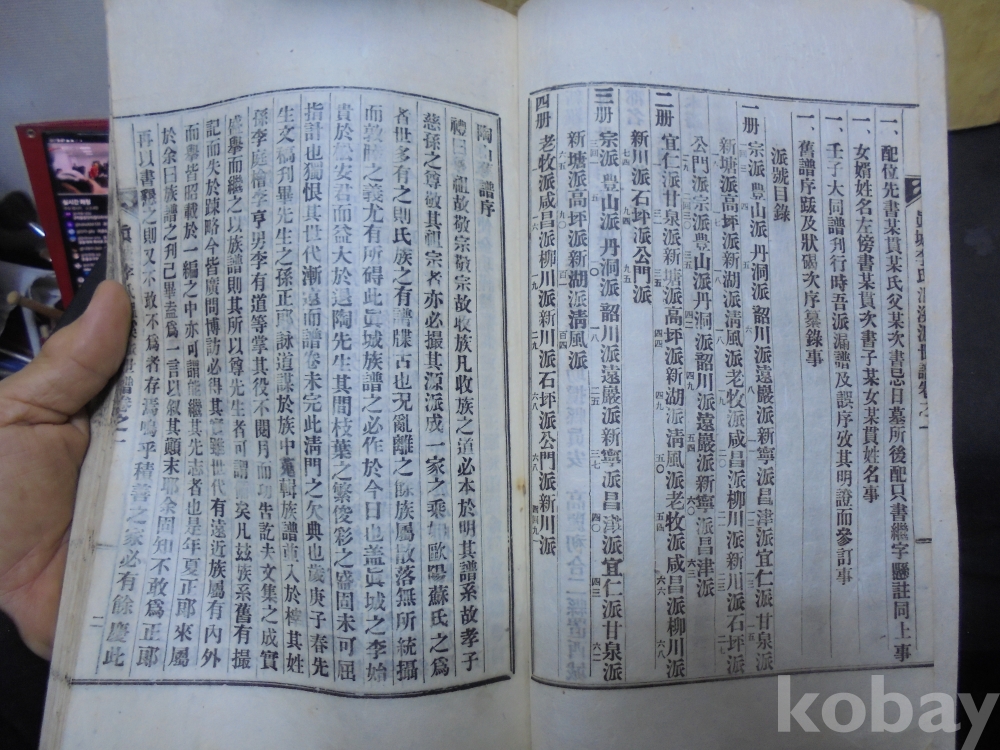 一、配位先書某貫某氏父某次書忌日墓所後配只書繼字懸註同上事
一、女婿姓名左傍書某貫次書子某女某貫姓名事
一、壬子大同譜刊行時吾派漏譜及誤序攷其明證而參訂事
一、舊譜序跋及狀碣次序纂錄事
派號目錄
一册 宗派 豊山派 丹洞派 韶川派 遠巖派 新寧派 昌津派 宜仁派 甘泉派
新塘派 高坪派 新湖派 淸風派 老牧派 咸昌派 柳川派 新川派 石坪派
公門派
二册 宗派 豊山派 丹洞派 韶川派 遠巖派 新寧派 昌津派
宜仁派 甘泉派 新塘派 高坪派 新湖派 淸風派 老牧派 咸昌派 柳川派
新川派 石坪派 公門派
三册 宗派 豊山派 丹洞派 韶川派 遠巖派 新寧派 昌津派 宜仁派 甘泉派
新塘派 高坪派 新湖派 淸風派
四册 老牧派 咸昌派 柳川派 新川派 石坪派 公門派 新川派
陶 譜序
禮曰 祖故敬宗敬宗故收族凡收族之道必本於明其譜系故孝子
慈孫之尊敬其祖宗者亦必撮其源派成一家之乘如歐陽蘇氏之爲
者世多有之則氏族之有譜牒古也况亂離之餘族屬散落無所統攝
而敦睦之義尤有所碍此眞城族譜之必作於今日也盖眞城之李始
貴於松安君而益大於退陶先生其間枝葉之繁俊彩之盛固未可屈
指計也獨恨其世代漸遠而譜卷未完此淸門之欠典也歲庚子春先
生文稿刋畢先生之孫正郞詠道謀於族中蒐輯族譜重入於梓其姓
孫李庭檜字亨男李有道等掌其役不閱月而功告訖夫文集之成實
盛擧而繼之以族譜則其所以尊先生者可謂 矣凡玆族系舊有撮
記而失於踈略今皆廣問博訪必得其實雖世代有遠近族屬有內外
皆昭載於一編之中亦可謂能繼其先志者也是年夏正郞來屬
於余曰族譜之刋已畢盍爲一言以叙其顚末耶余固知不敢爲正郞
再以書 之則又不敢不爲者存焉嗚乎積善之家必有餘慶此
kobay